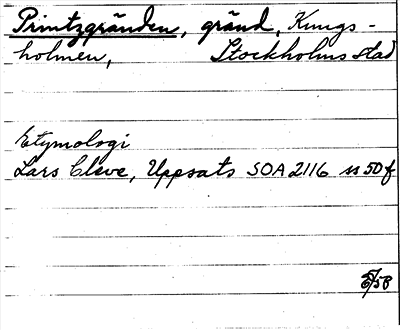 Printzgränden, gränd, Kungs-
holmen, Stockholms stad
Etymologi
Lars Cleve, Uppsats SOA 2116 ss 50 f